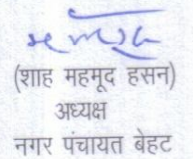 (शाह महमूद हसन)
अध्यक्ष
नगर पंचायत बेहट